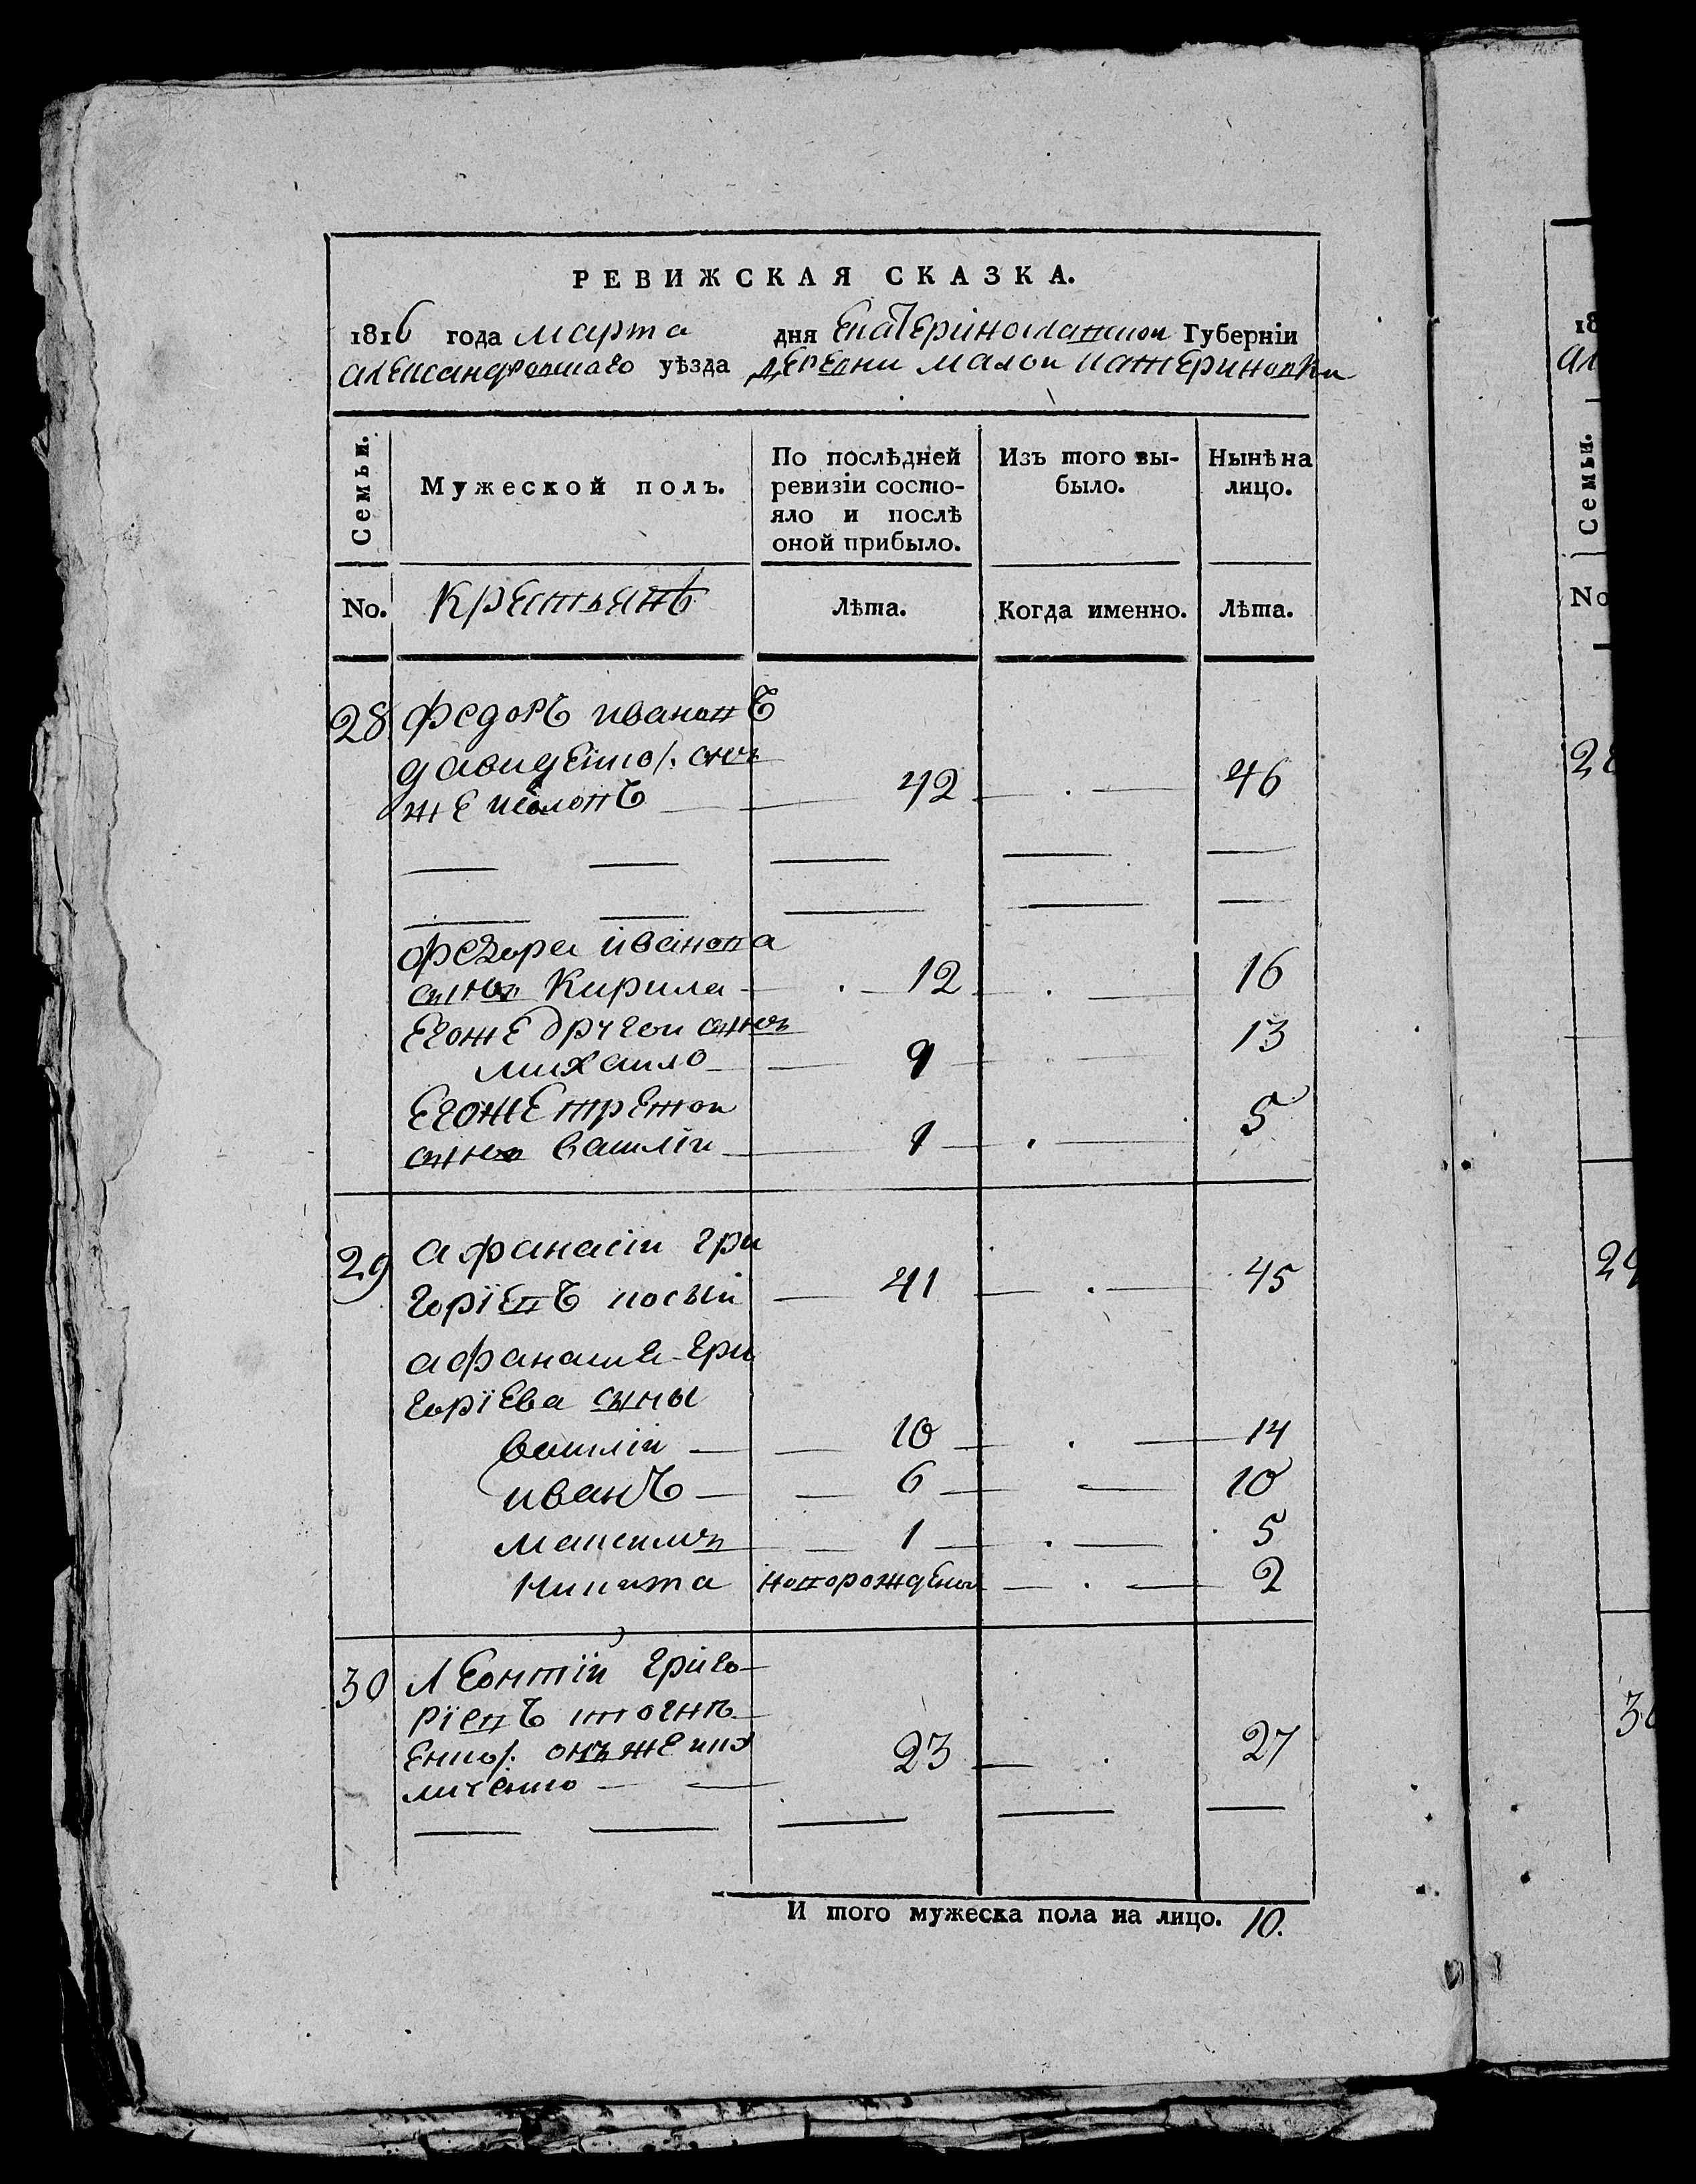 РЕВИЖСКАЯ СКАЗКА.
1816 года марта дня Екатеринославской Губерніи
александровскаго уѣзда деревни малой катериновки
Семьи.
Мужеской полъ.
По послѣдней ревизіи состояло и послѣ оной прибыло.
Изъ того выбыло.
Нынѣ на лицо.
No. Крестьянѣ Лѣта. Когда именно. Лѣта.
28 федоръ ивановъ
давиденко /: онъ
же 42 46
федора иванова
сынъ Кирила 12 16
Егоже другои сынъ
михаило 9 13
Егоже третои
сынъ василіи 1 5
29 афанасіи гри
горіевъ косыи 41 45
афанасия гри
горіева сыны
василіи 10 14
иванъ 6 10
максимъ 1 5
никита новорожденои 2
30 Леонтіи григо
ріевъ
онъ же
23 27
И того мужеска пола на лицо. 10.
18
ал
Семьи.
No
28
29
30